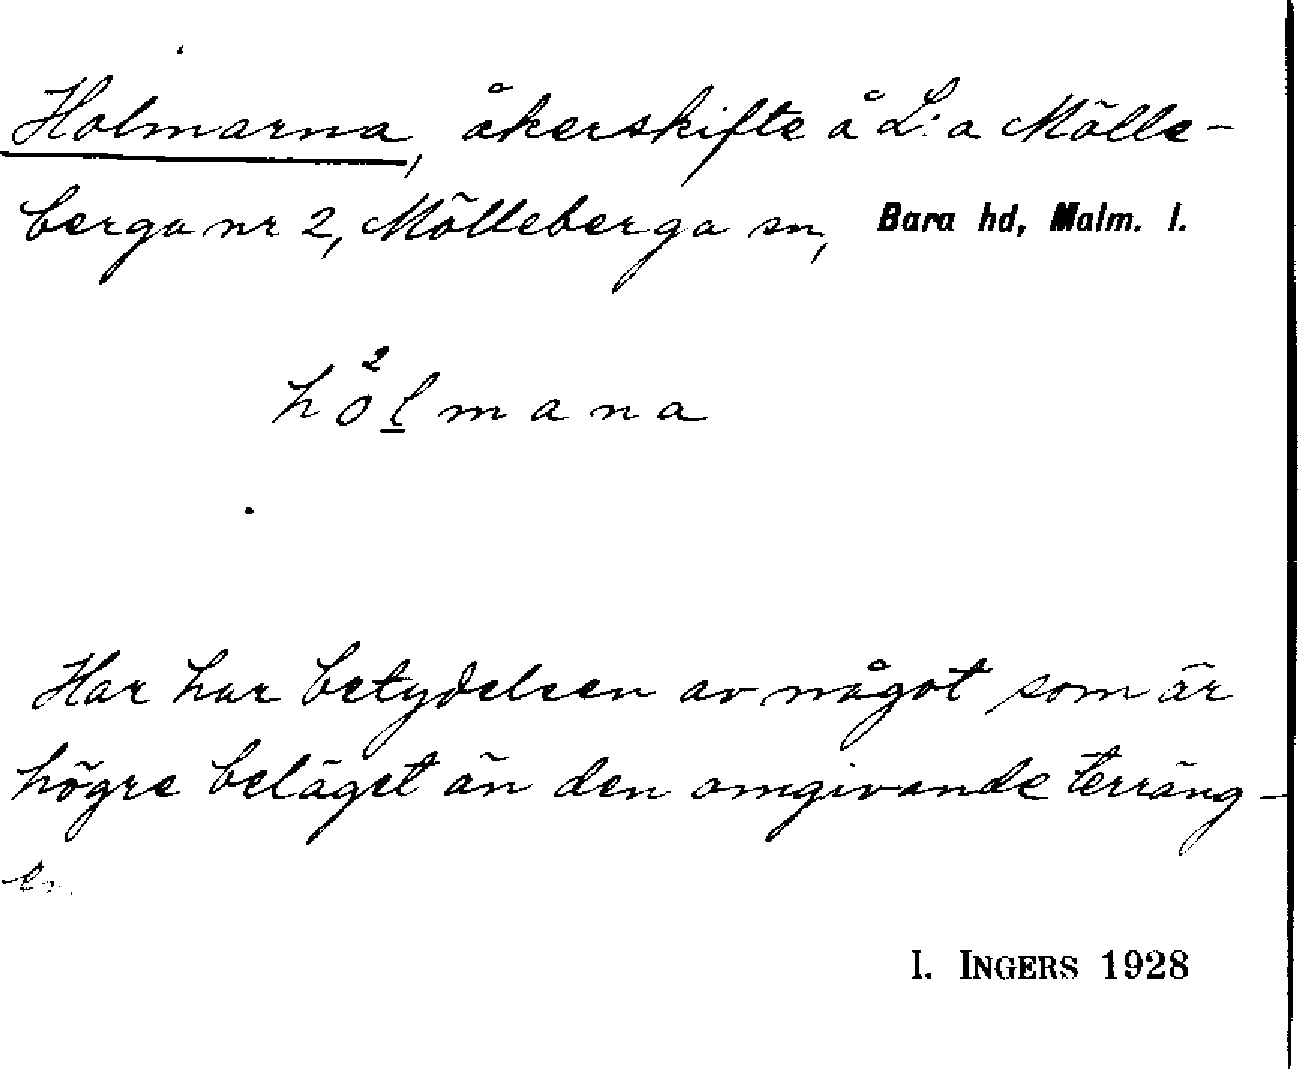 Holmarna, åkerskifte å L:a Mölle-
berga nr 2, Mölleberga sn, Bara hd, Malm. l.
hö²lmana
Här har betydelsen av något som är
högre beläget än den omgivande terräng-
en.
I. INGERS 1928